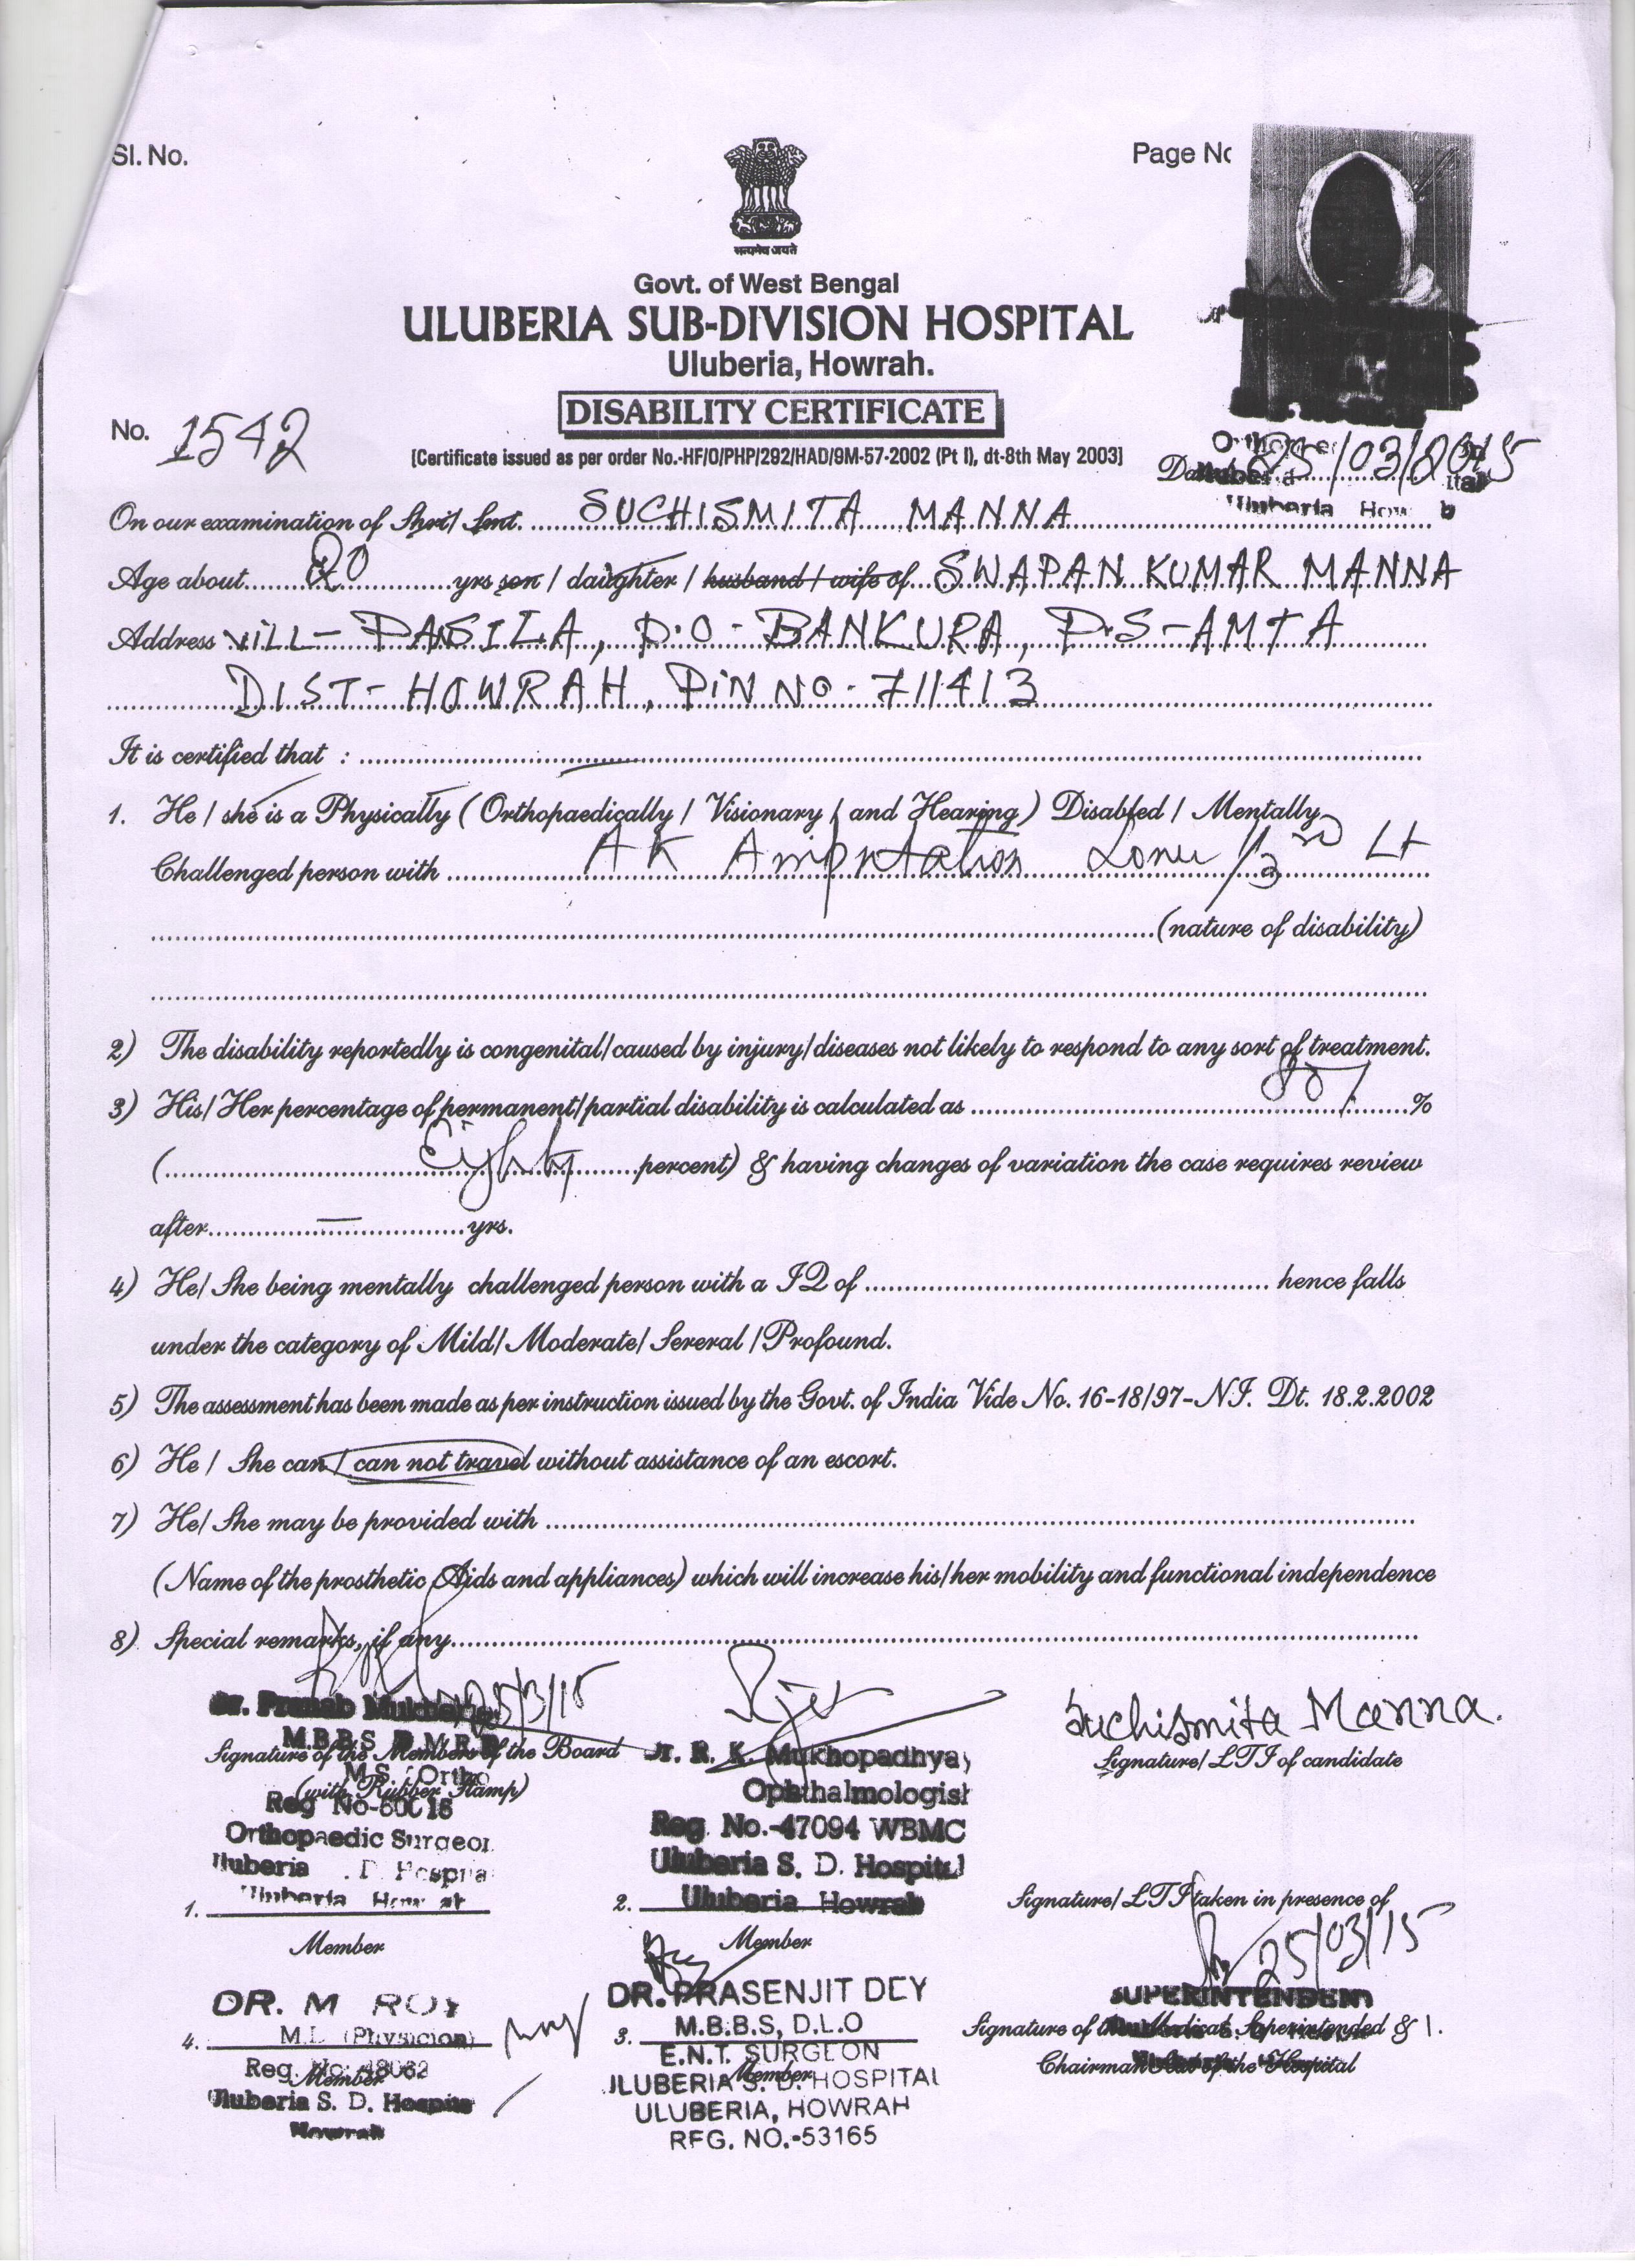 Sl. No.
Page No
सत्यमेव जयते
Govt. of West Bengal
ULUBERIA SUB-DIVISION HOSPITAL
Uluberia, Howrah.
DISABILITY CERTIFICATE
No. 1542
[Certificate issued as per order No.-HF/O/PHP/292/HAD/9M-57-2002 (Pt I), dt-8th May 2003]
25/03/2015
On our examination of Shri/ Smt. SUCHISMITA MANNA
Age about 20 yrs son / daughter / husband / wife of SWAPAN KUMAR MANNA
Address VILL- PANSILA, P.O- BANKURA, P.S-AMTA
DIST- HOWRAH, PIN NO- 711413
It is certified that :
1. He / she is a Physically (Orthopaedically / Visionary / and Hearing) Disabled / Mentally
Challenged person with AK Amputation Lower 1/3rd Lt
(nature of disability)
2) The disability reportedly is congenital/caused by injury/diseases not likely to respond to any sort of treatment.
3) His/ Her percentage of permanent/partial disability is calculated as 80 %
(Eighty percent) & having changes of variation the case requires review
after — yrs.
4) He/ She being mentally challenged person with a IQ of hence falls
under the category of Mild/ Moderate/ Sereral / Profound.
5) The assessment has been made as per instruction issued by the Govt. of India Vide No. 16-18/97-NI. Dt. 18.2.2002
6) He / She can / can not travel without assistance of an escort.
7) He/ She may be provided with
(Name of the prosthetic Aids and appliances) which will increase his/her mobility and functional independence
8) Special remarks, if any
25/3/15
Suchismita Manna.
Dr. Pranab
M.B.B.S
Signature of the Members of the Board
Dr. R. K. Mukhopadhyay
Signature/ LTI of candidate
M.S. Ortho
(with Rubber Stamp)
Ophthalmologist
Reg No-60018
Reg. No.-47094 WBMC
Orthopaedic Surgeon
Uluberia S. D. Hospital
Uluberia D. Hospital
Uluberia Howrah
Signature/ LTI taken in presence of
1.
2. Uluberia Howrah
Member
Member
25/03/15
DR. M ROY
DR. PRASENJIT DEY
SUPERINTENDENT
4. M.D. (Physician)
3. M.B.B.S, D.L.O
Signature of the Medical Superintended & 1.
Reg. No: 48062
Member
E.N.T. SURGEON
Member
Chairman of the Hospital
Uluberia S. D. Hospital
ULUBERIA S. D. HOSPITAL
Howrah
ULUBERIA, HOWRAH
REG. NO.-53165